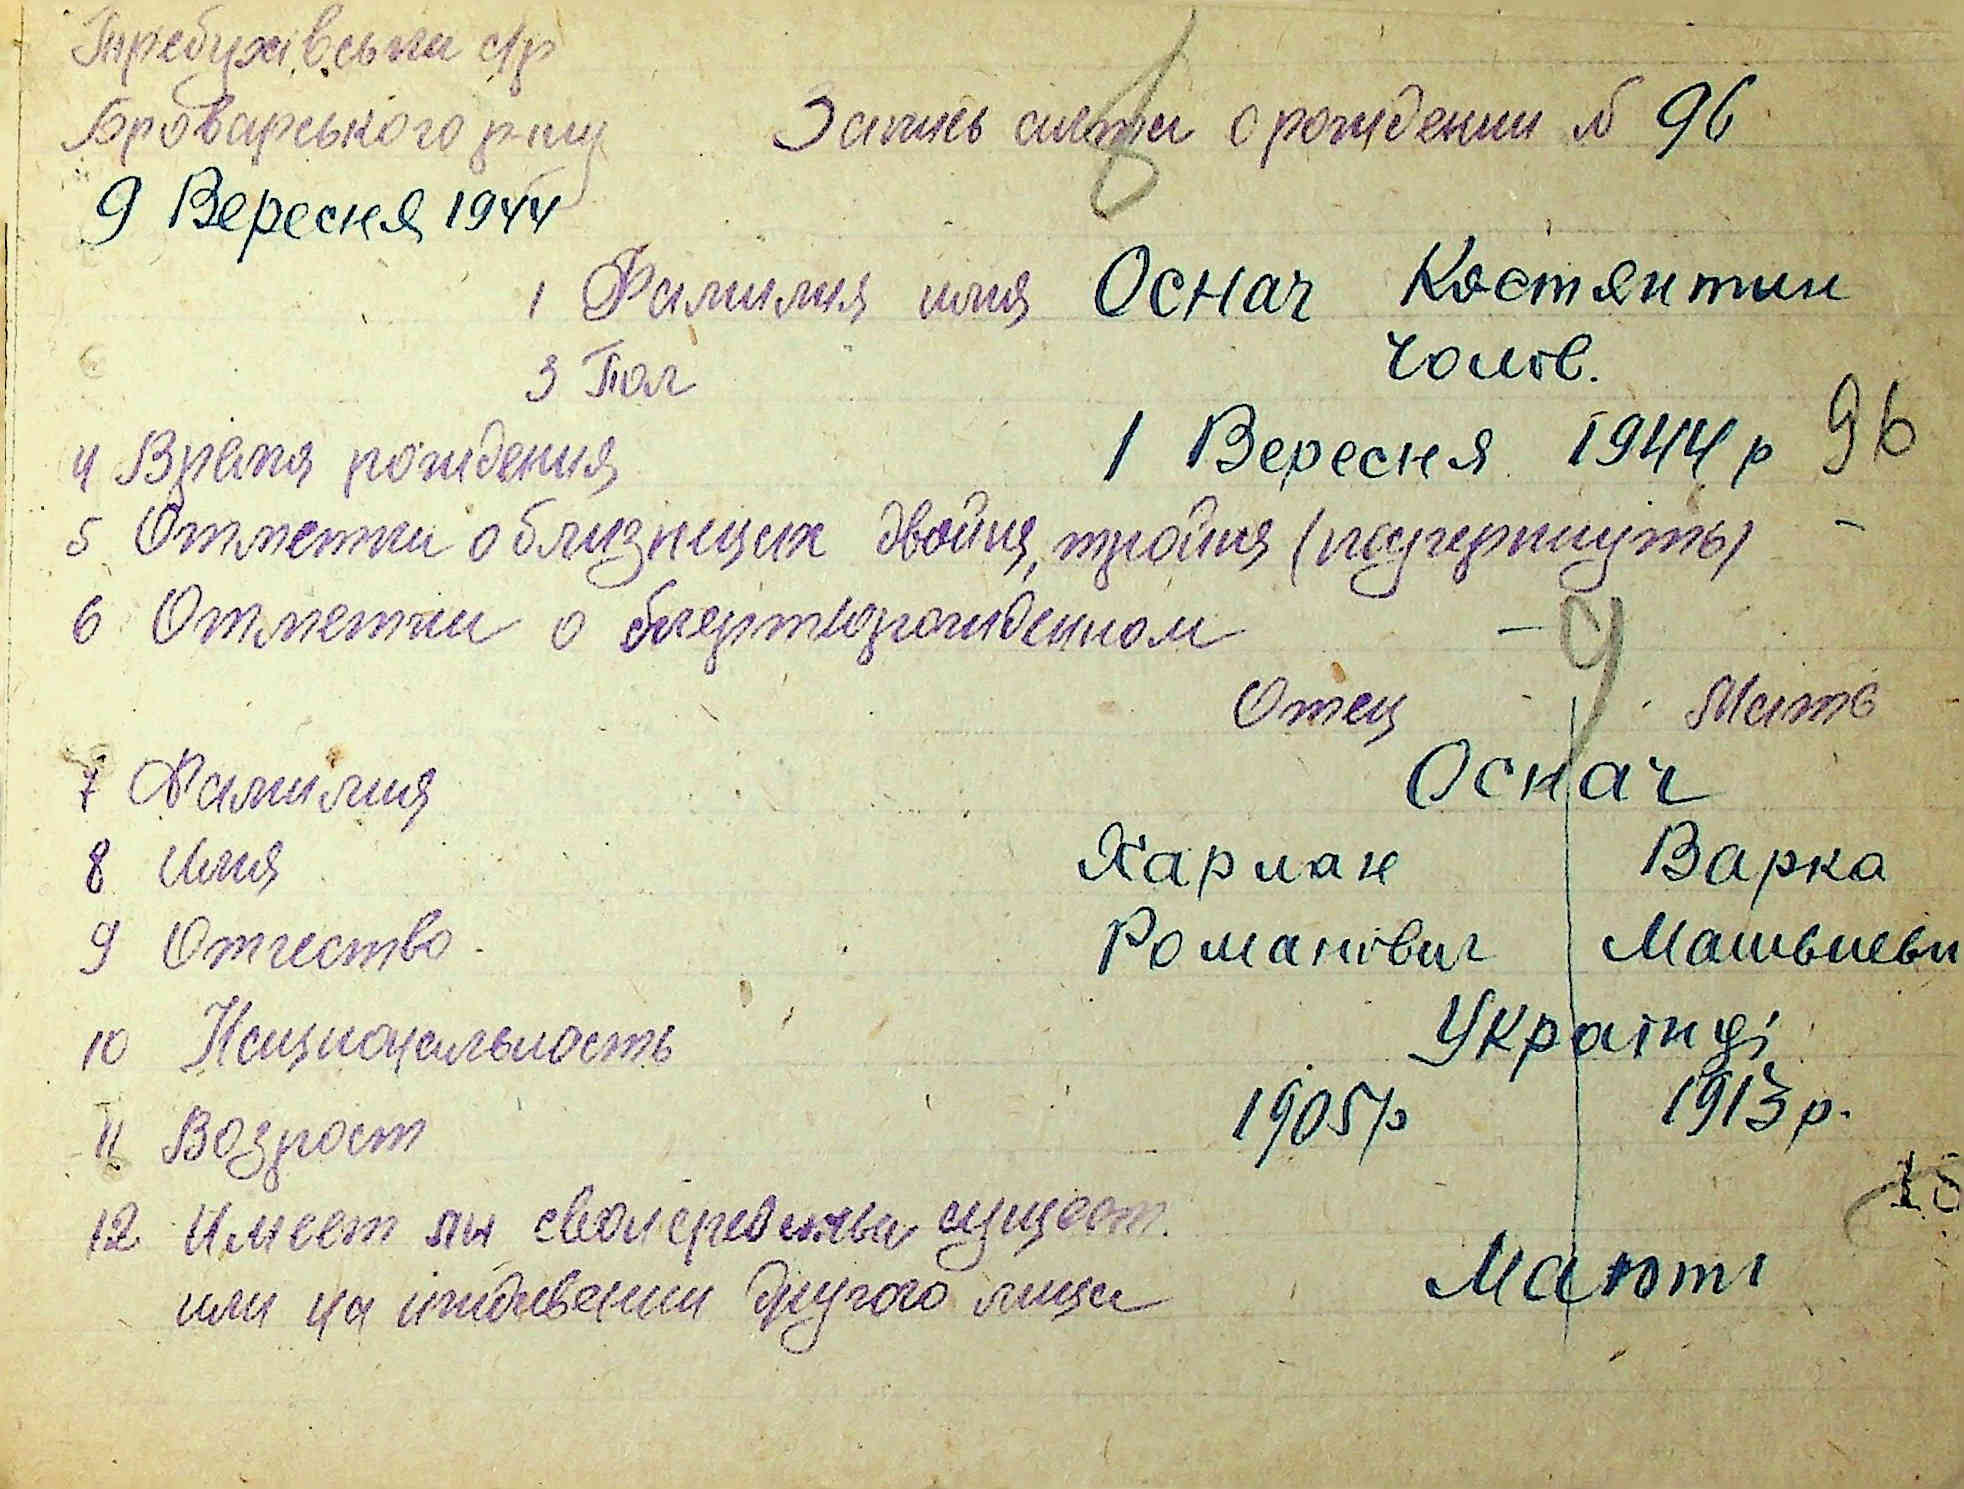 Требухівська с/р
Броварського р-ну Запись акта о рождении № 96
9 Вересня 1944
1 Фамилия имя Оснач Костянтин
3 Пол Чолов.
4 Время рождения 1 Вересня 1944 р 96
5 Отметки о близнецах двойня, тройня (подчеркнуть) -
6 Отметки о мертворожденном -
Отец Мать
7 Фамилия Оснач
8 Имя Харлан Варка
9 Отчество Романович
10 Национальность Українці
11 Возраст 1905 р 1913 р.
12 Имеет ли свои средства сущест.
или на иждивении другого лица Мают